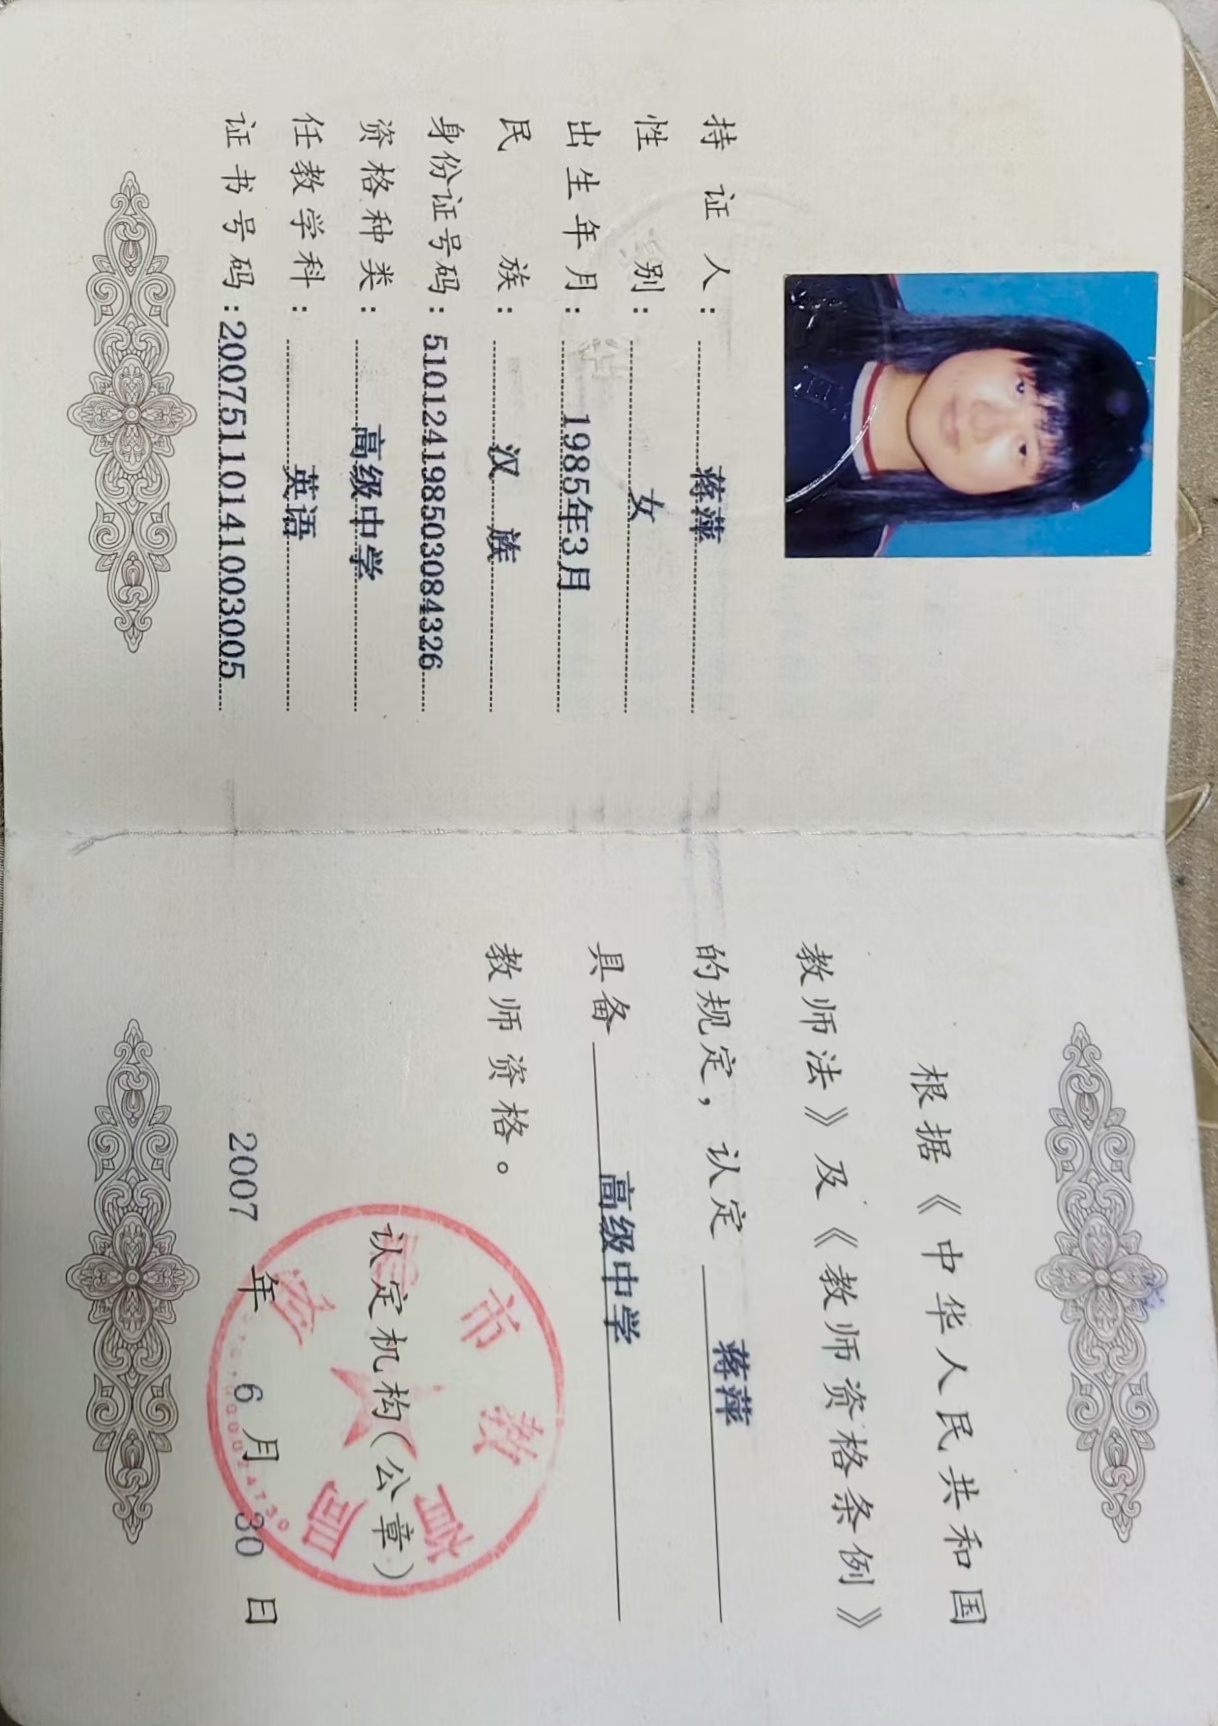 持证人：蒋萍
性别：女
出生年月：1985年3月
民族：汉族
身份证号码：510124198503084326
资格种类：高级中学
任教学科：英语
证书号码：20075110141003005
根据《中华人民共和国
教师法》及《教师资格条例》
的规定，认定 蒋萍
具备 高级中学
教师资格。
认定机构（公章）
市教育局
2007 年 6 月 30 日